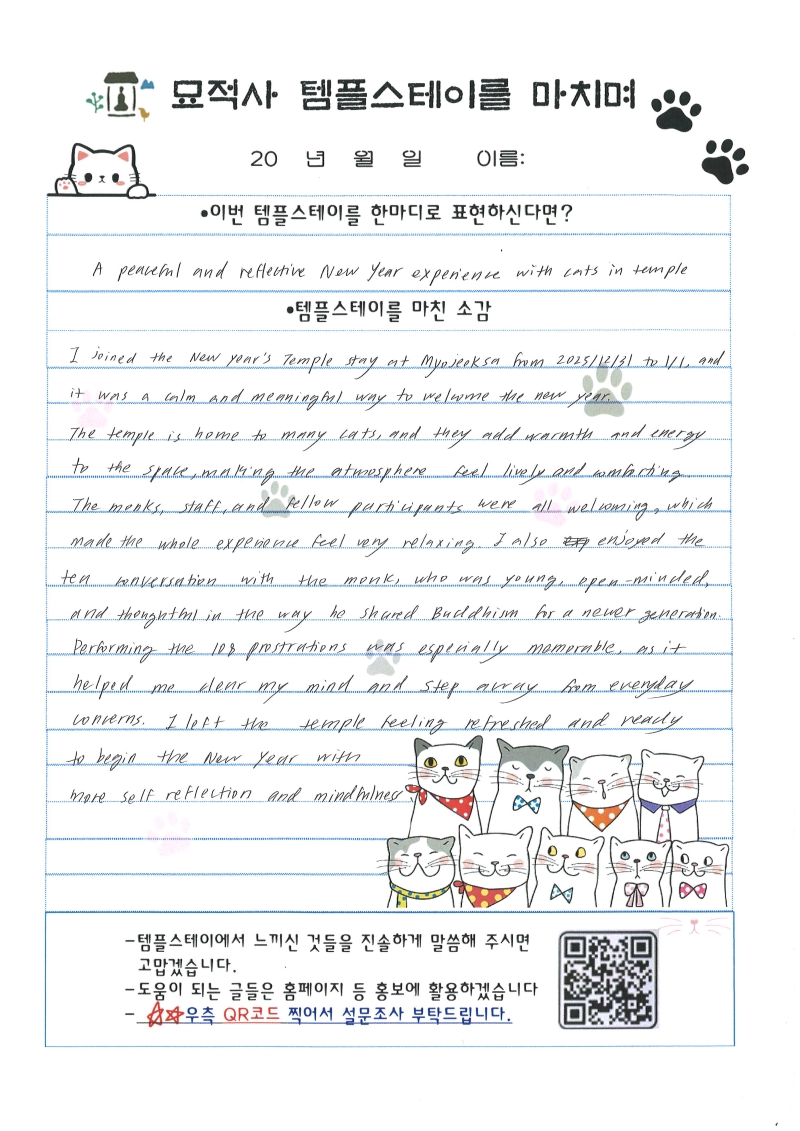 묘적사 템플스테이를 마치며
20 년 월 일 이름:
•이번 템플스테이를 한마디로 표현하신다면?
A peaceful and reflective New Year experience with cats in temple
•템플스테이를 마친 소감
I joined the New Year's Temple stay at Myojeoksa from 2025/12/31 to 1/1, and
it was a calm and meaningful way to welcome the new year.
The temple is home to many cats, and they add warmth and energy
to the space, making the atmosphere feel lively and comforting.
The monks, staff, and fellow participants were all welcoming, which
made the whole experience feel very relaxing. I also enjoyed the
tea conversation with the monk, who was young, open-minded,
and thoughtful in the way he shared Buddhism for a newer generation.
Performing the 108 prostrations was especially memorable, as it
helped me clear my mind and step away from everyday
concerns. I left the temple feeling refreshed and ready
to begin the New Year with
more self reflection and mindfulness.
-템플스테이에서 느끼신 것들을 진솔하게 말씀해 주시면
고맙겠습니다.
-도움이 되는 글들은 홈페이지 등 홍보에 활용하겠습니다
- ☆☆우측 QR코드 찍어서 설문조사 부탁드립니다.